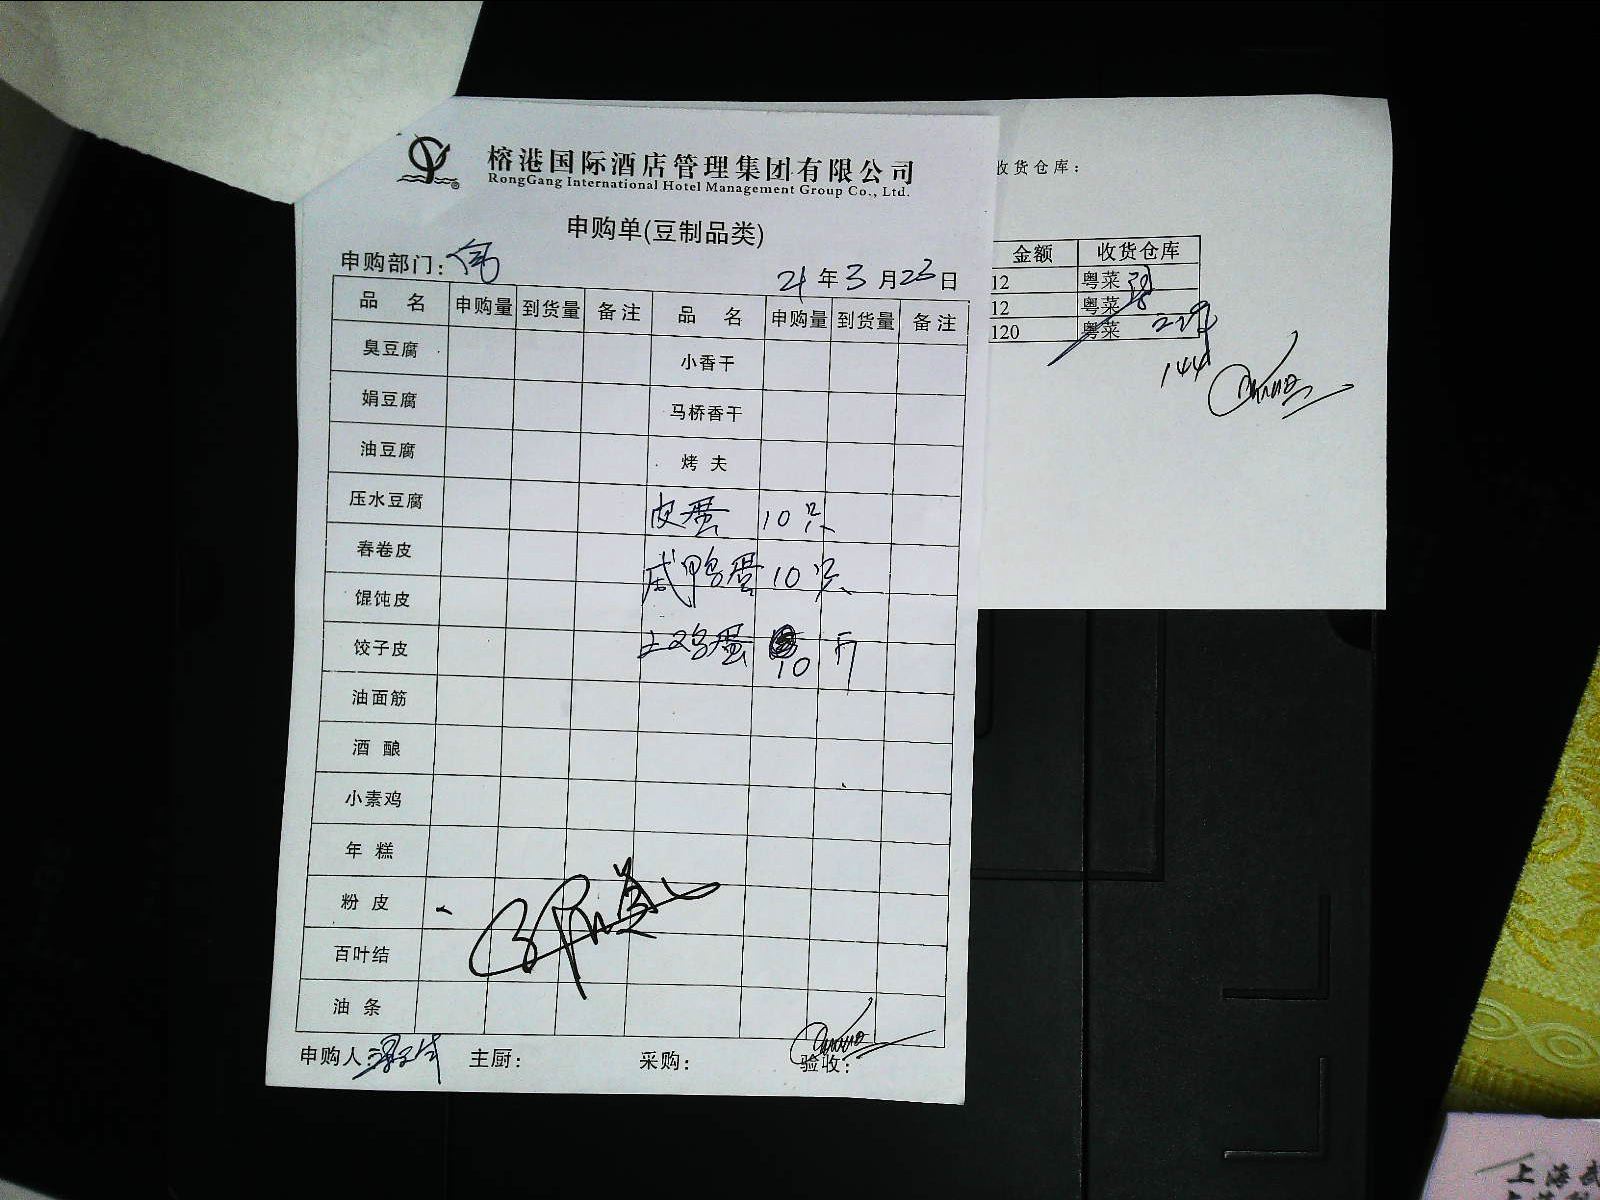 榕港国际酒店管理集团有限公司
RongGang International Hotel Management Group Co., Ltd.
申购单(豆制品类)
申购部门:
21年3月23日
品 名 申购量 到货量 备注 品 名 申购量 到货量 备注
臭豆腐 小香干
娟豆腐 马桥香干
油豆腐 烤夫
压水豆腐 皮蛋 10 只
春卷皮 咸鸭蛋 10 只
馄饨皮
饺子皮 土鸡蛋 10 斤
油面筋
酒酿
小素鸡
年糕
粉皮
百叶结
油条
申购人 主厨: 采购: 验收:
收货仓库:
金额 收货仓库
12 粤菜
12 粤菜
120 粤菜
144
上海